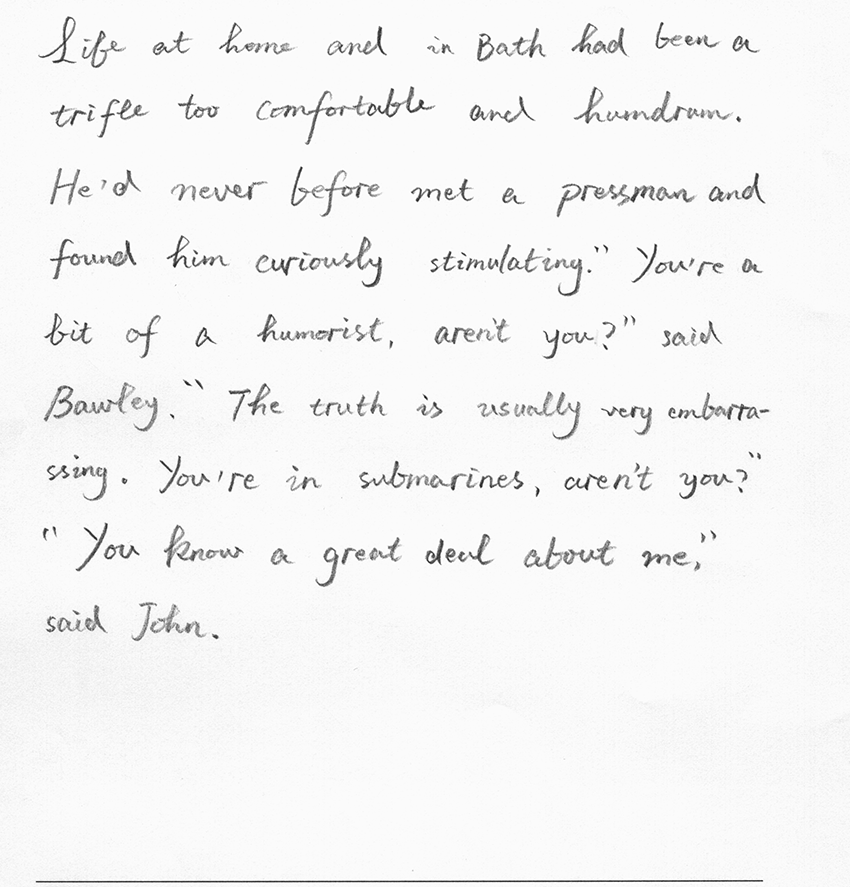 Life at home and in Bath had been a
trifle too comfortable and humdrum.
He'd never before met a pressman and
found him curiously stimulating." You're a
bit of a humorist, aren't you?" said
Bawley. "The truth is usually very embarra-
ssing. You're in submarines, aren't you?"
"You know a great deal about me,"
said John.